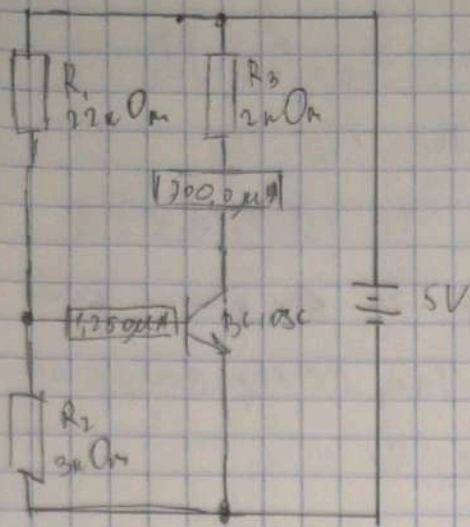 R₁
22кОм
R₃
2кОм
700,0μA
1,250μA
BC109C
5V
R₂
3кОм